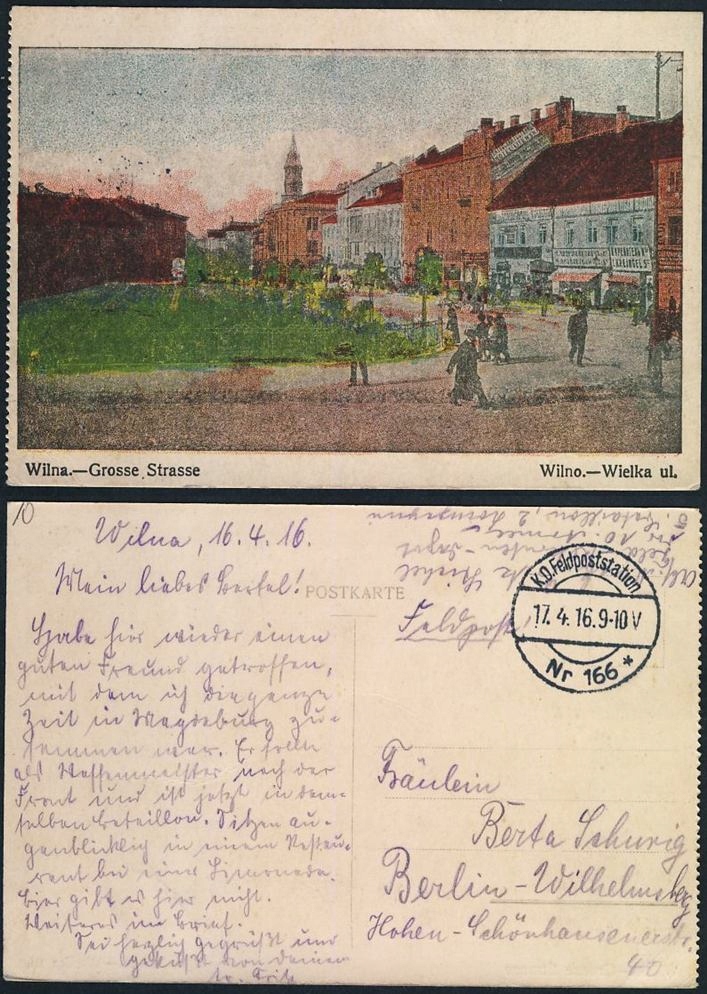 Wilna.—Grosse Strasse
Wilno.—Wielka ul.
10
Wilna, 16.4.16.
Mein liebes Bertel!
POSTKARTE
Habe hier wieder einen
guten Freund getroffen,
mit dem ich die ganze
Zeit in Magdeburg zu-
sammen war. Er kam
als Waffenmeister nach der
Front und ist jetzt in dem-
selben Bataillon. Sitzen au-
genblicklich in einem Restau-
rant bei einer Limonade.
Bier gibt es hier nicht.
Weiteres im Brief.
Sei herzlich gegrüßt und
geküßt von deinem
tr. Fritz
Feldpost!
Armee
Bataillon, 2 Kompagnie
K.D. Feldpoststation
17. 4. 16. 9-10 V
Nr 166 *
Fräulein
Berta Schurig
Berlin-Wilhelmsberg
Hohen-Schönhausenerstr.
40